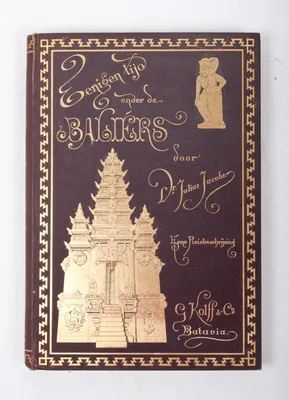 Eenigen tijd
onder de
BALIËRS
door
Dr. Julius Jacobs.
Eene Reisbeschrijving
G. Kolff & Co.
Batavia.